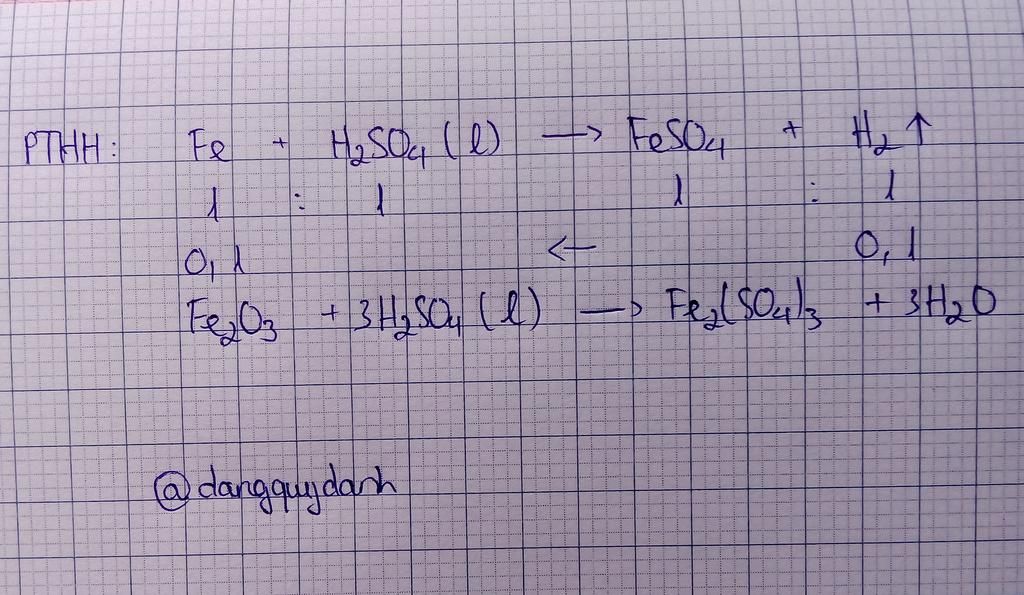 PTHH: Fe + H₂SO₄ (l) → FeSO₄ + H₂↑
1 : 1 1 : 1
0,1 ← 0,1
Fe₂O₃ + 3H₂SO₄ (l) → Fe₂(SO₄)₃ + 3H₂O
@dangquydanh